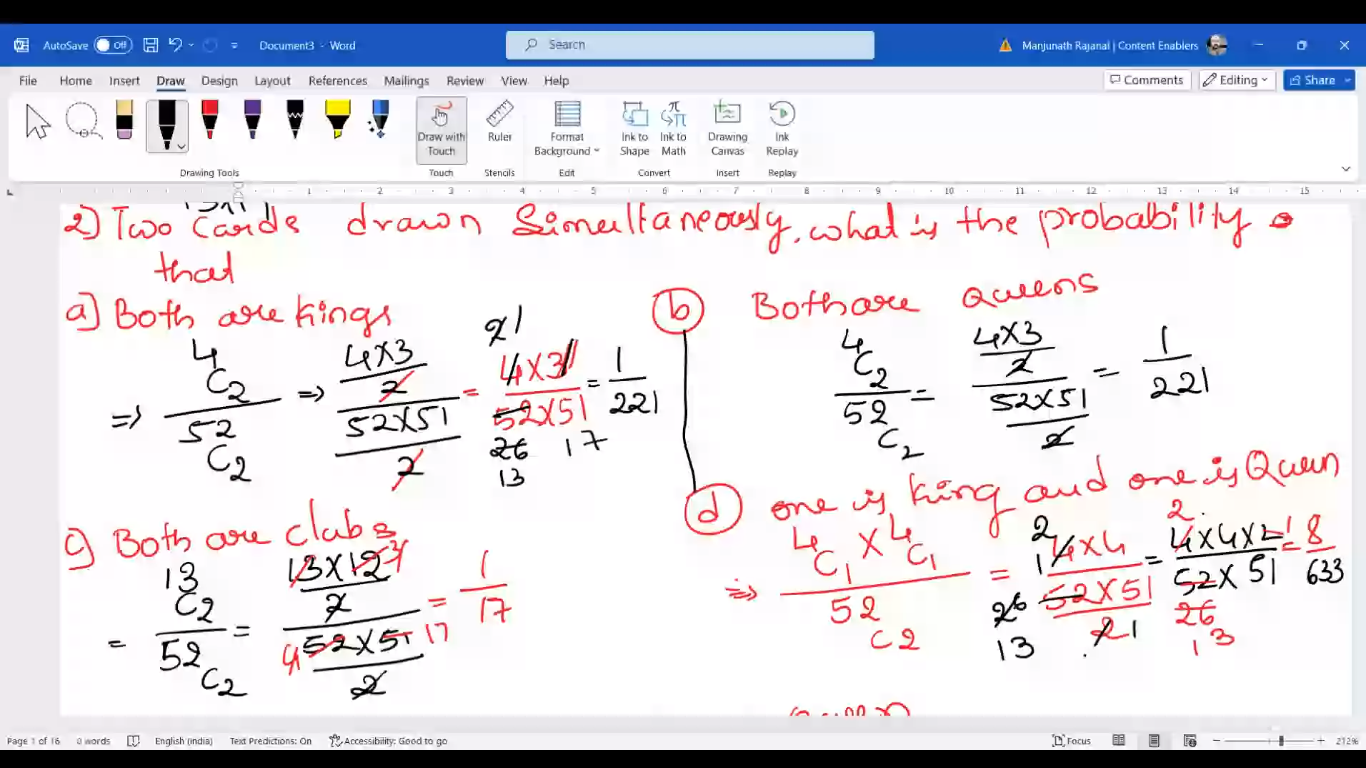 AutoSave Off Document3 - Word Search Manjunath Rajanal | Content Enablers
File Home Insert Draw Design Layout References Mailings Review View Help Comments Editing Share
Draw with Touch Ruler Format Background Ink to Shape Ink to Math Drawing Canvas Ink Replay
Drawing Tools Touch Stencils Edit Convert Insert Replay
1 2 3 4 5 6 7 8 9 10 11 12 13 14 15
2) Two cards drawn Simultaneously, what is the probability
that
a) Both are kings
⇒ 4C2 / 52C2 ⇒ (4×3/2) / (52×51/2) = 4×3 / 52×51 = 1/221
21
26 17
13
b Both are Queens
4C2 / 52C2 = (4×3/2) / (52×51/2) = 1/221
c) Both are clubs
= 13C2 / 52C2 = (13×12/2) / (52×51/2) = 1/17
3
4 17
d one is king and one is Queen
⇒ 4C1 × 4C1 / 52C2 = 4×4 / (52×51/2) = 4×4×2 / 52×51 = 8/633
2 2
1 1
26 1 26
13 13
Page 1 of 16 0 words English (India) Text Predictions: On Accessibility: Good to go Focus 212%